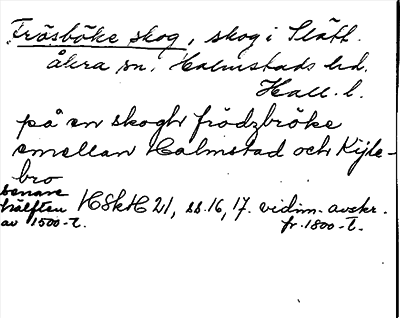 Frösböke skog, skog i Slätt-
åkra sn, Halmstads hd.
Hall. l.
på en skoghr frödzbröke
emellan Halmstad och Kijle-
bro
senare
hälften
av 1500-t.
HSkH 21, ss. 16, 17. vidim. avskr.
fr. 1800-t.